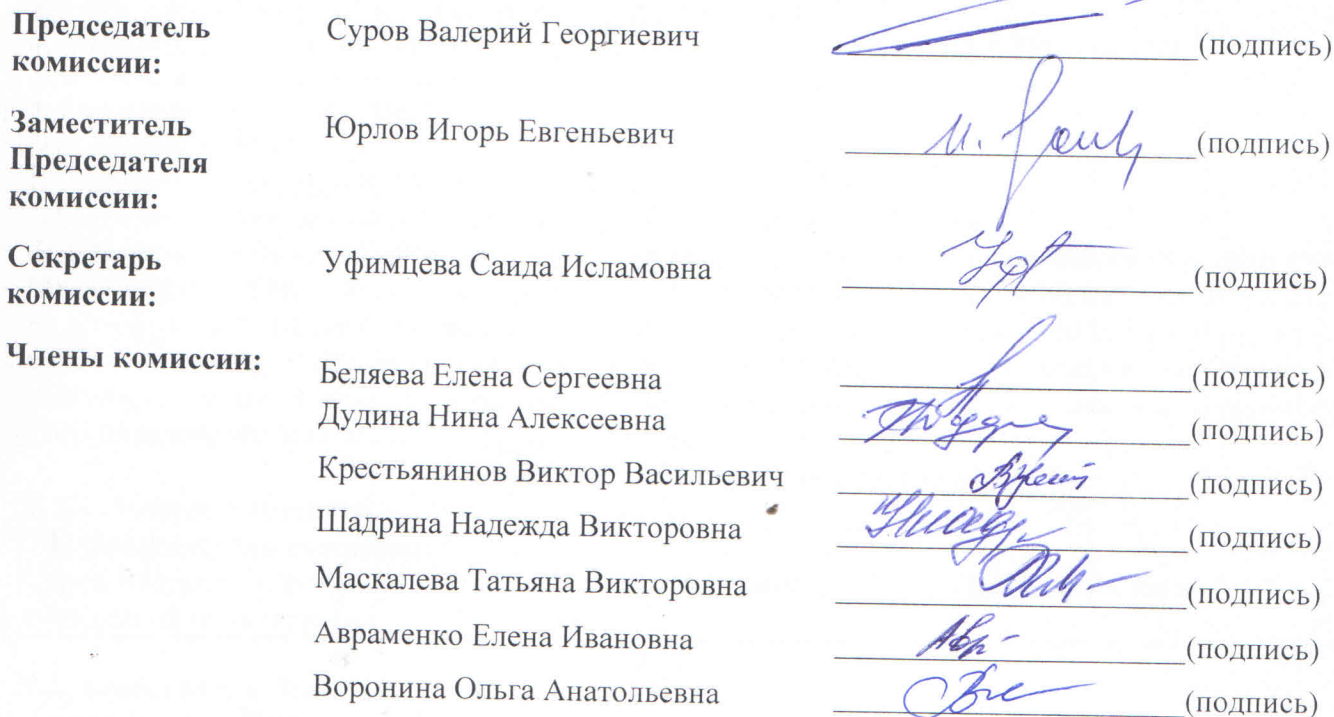 Председатель комиссии: Суров Валерий Георгиевич (подпись)
Заместитель Председателя комиссии: Юрлов Игорь Евгеньевич (подпись)
Секретарь комиссии: Уфимцева Саида Исламовна (подпись)
Члены комиссии:
Беляева Елена Сергеевна (подпись)
Дудина Нина Алексеевна (подпись)
Крестьянинов Виктор Васильевич (подпись)
Шадрина Надежда Викторовна (подпись)
Маскалева Татьяна Викторовна (подпись)
Авраменко Елена Ивановна (подпись)
Воронина Ольга Анатольевна (подпись)